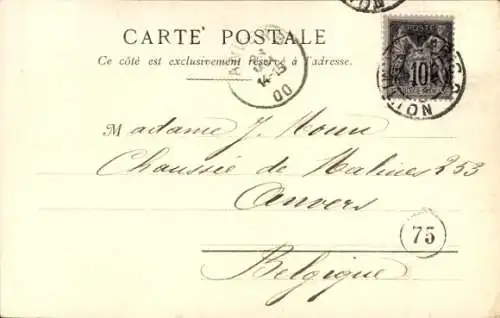 CARTE POSTALE
Ce côté est exclusivement réservé à l'adresse.
14-15
00
10
Madame J.
Chaussée de Malines 253
Anvers
75
Belgique